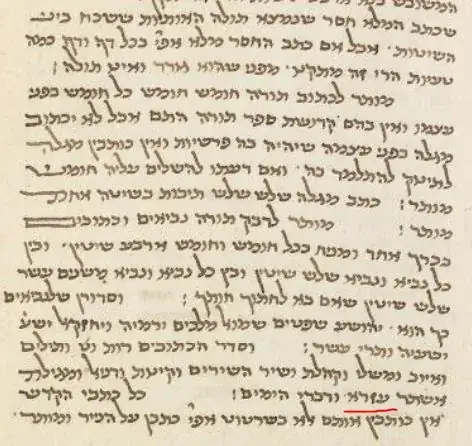 המשובש
שכתב המלא חסר שנמצא תולה האותיות ששכח בין
השיטות · אבל אם כתב החסר מלא אפי' בכל דף ודף כמה
טעיות הרי זה מתקן · מפני שהוא גורד ואינו תולה :
מותר לכתוב תורה חומש חומש כל חומש בפני
עצמו ואין בהם קדושת ספר תורה התם אבל לא יכתוב
מגלה בפני עצמה שיהיה בה פרשיות ואין כותבין מגלה
לתינוק להתלמד בה · ואם דעתו להשלים עליה חומש
מותר : כתב מגלה שלש שלש תיבות בשיטה אחת
מותר : מותר לדבק תורה נביאים וכתובים
בכרך אחד ומניח בכל חומש וחומש ארבע שיטין · ובין
כל נביא ונביא שלש שיטין ובין כל נביא ונביא משנים עשר
שלש שיטין שאם בא לחתוך חותך : וסדורן שלנביאים
כך הוא · יהושע שפטים שמוא' מלכים ירמיה ויחזקא' ישע
ישעיה ותרי עשר : וסדר הכתובים רות ותילים
ואיוב ומשלי וקהלת ושיר השירים וקינות ודניאל ומגילת
אסתר עזרא ודברי הימים : כל כתבי הקדש
אין כותבין אותם אלא בשרטוט אפי' כתבן על הנייר ומותר ·